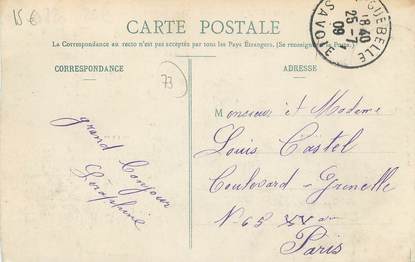 15 €
CARTE POSTALE
La Correspondance au recto n'est pas acceptée par tous les Pays Étrangers. (Se renseigner à la Poste.)
CORRESPONDANCE
ADRESSE
73
GUEBELLE
18 40
25 - 7
09
SAVOIE
grand bonjour
Séraphine
Monsieur et Madame
Louis Castel
Boulevard - Grenelle
N- 65 XV
Paris